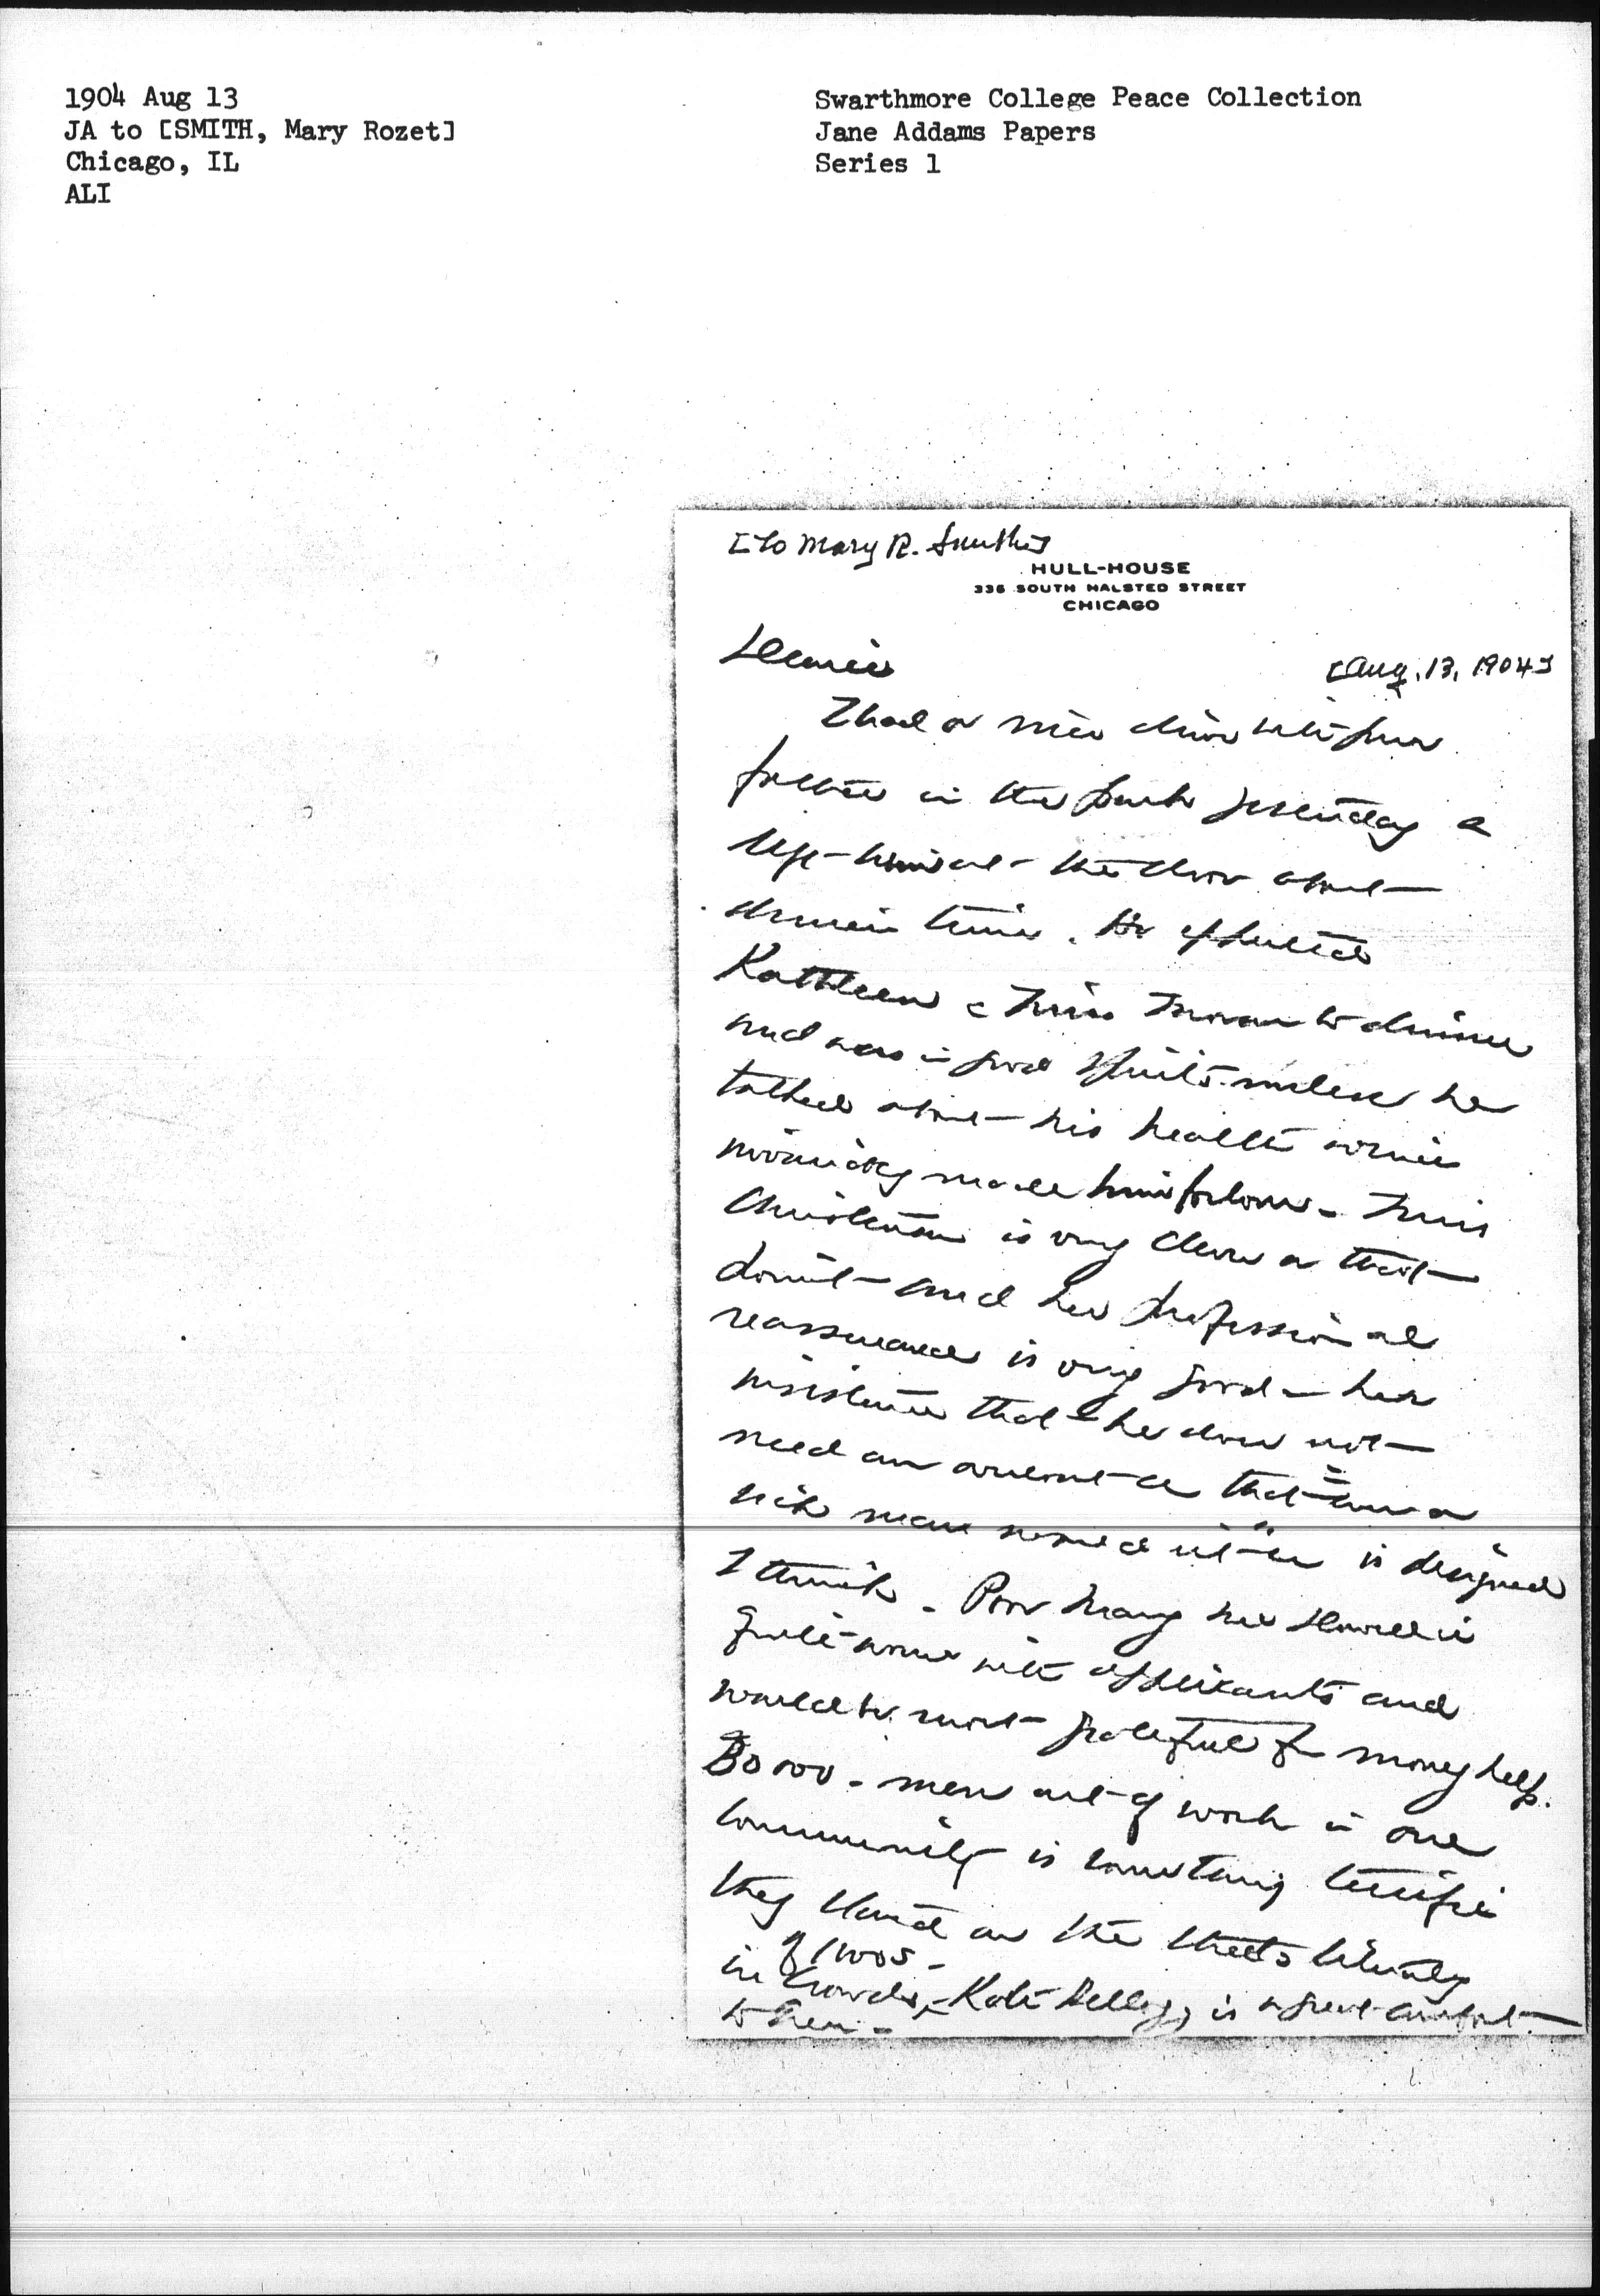 1904 Aug 13
JA to [SMITH, Mary Rozet]
Chicago, IL
ALI
Swarthmore College Peace Collection
Jane Addams Papers
Series 1
[To Mary R. Smith]
HULL-HOUSE
336 SOUTH HALSTED STREET
CHICAGO
[Aug. 13, 1904]
Dearie
I had a nice drive with your
father in the park yesterday &
left him at the door about
dinner time. He expected
Kathleen & Miss to dinner
and was in good spirits unless he
talked about his health which
made him forlorn. Miss
is very clever on that
point and her professional
reassurance is very good — her
insistence that he does not
need an & that
sick man would is designed
I think. Poor Mary Mc Dowell is
quite worn with applicants and
would be most grateful for money help.
30000 men out of work in one
community is something terrific
they stand on the streets literally
in crowds of 1000s — Kate Kellogg is a great comfort
to them.